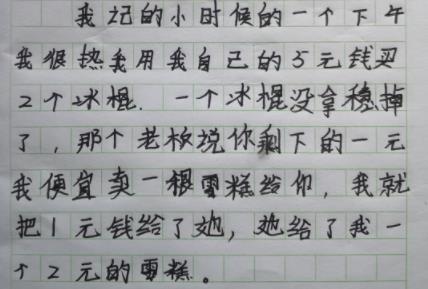 我记的小时候的一个下午
我很热我用我自己的5元钱买
2个冰棍．一个冰棍没拿稳掉
了，那个老板说你剩下的一元
我便宜卖一根雪糕给你，我就
把1元钱给了她，她给了我一
个2元的雪糕。